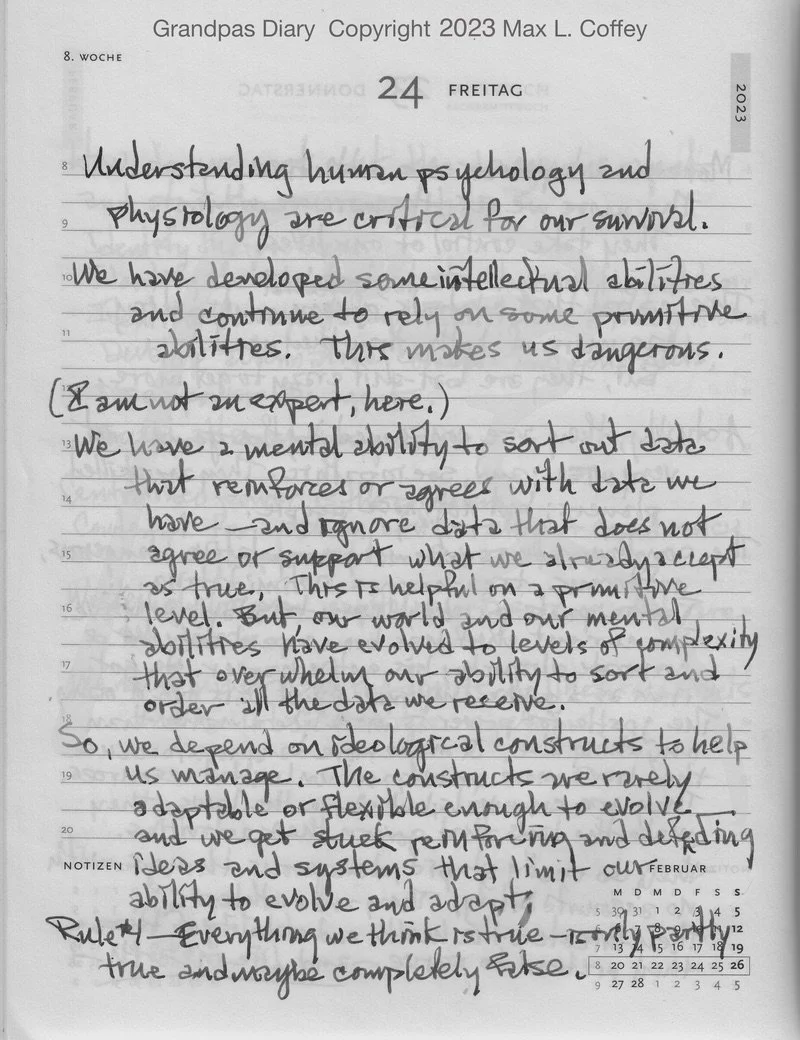 Grandpas Diary Copyright 2023 Max L. Coffey
8. WOCHE
24 FREITAG
2023
8 Understanding human psychology and
9 physiology are critical for our survival.
10 We have developed some intellectual abilities
and continue to rely on some primitive
11 abilities. This makes us dangerous.
12 (I am not an expert, here.)
13 We have a mental ability to sort out data
that reinforces or agrees with data we
14 have — and ignore data that does not
15 agree or support what we already accept
as true. This is helpful on a primitive
16 level. But, our world and our mental
abilities have evolved to levels of complexity
17 that overwhelm our ability to sort and
order all the data we receive.
18 So, we depend on ideological constructs to help
19 us manage. The constructs are rarely
adaptable or flexible enough to evolve —
20 and we get stuck reinforcing and defending
NOTIZEN ideas and systems that limit our
ability to evolve and adapt.
Rule #1 — Everything we think is true — is only partly
true and maybe completely false.
FEBRUAR
M D M D F S S
5 30 31 1 2 3 4 5
6 7 8 9 10 11 12
7 13 14 15 16 17 18 19
8 20 21 22 23 24 25 26
9 27 28 1 2 3 4 5